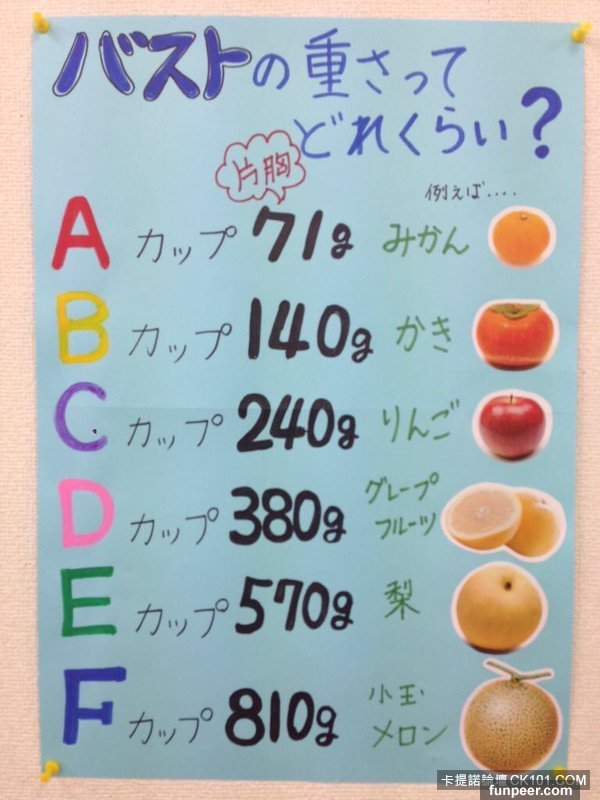 バストの重さって
どれくらい?
片胸
例えば....
Aカップ 71g みかん
Bカップ 140g かき
Cカップ 240g りんご
Dカップ 380g グレープ
フルーツ
Eカップ 570g 梨
Fカップ 810g 小玉
メロン
卡提諾論壇 CK101.COM
funpeer.com